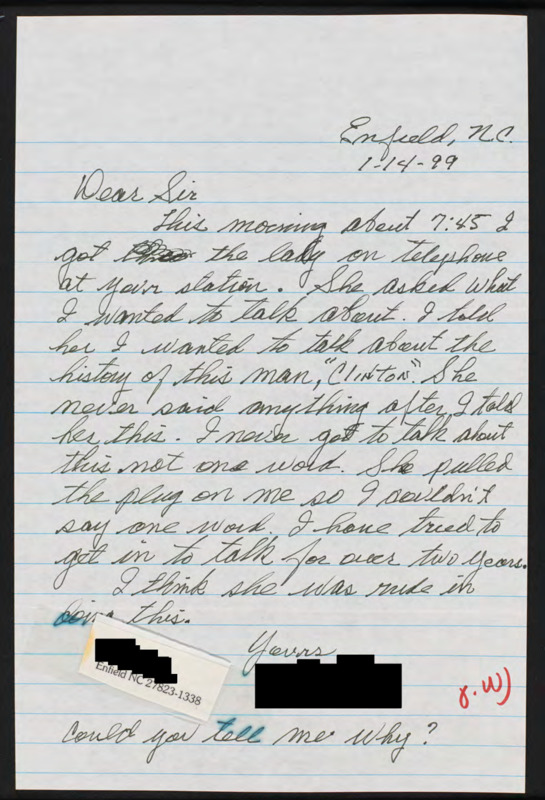 Enfield, N.C.
1-14-99
Dear Sir
This morning about 7:45 I
got the lady on telephone
at your station. She asked what
I wanted to talk about. I told
her I wanted to talk about the
history of this man, "Clinton". She
never said anything after I told
her this. I never got to talk about
this not one word. She pulled
the plug on me so I couldn't
say one word. I have tried to
get in to talk for over two years.
I think she was rude in
doing this.
Yours
Enfield NC 27823-1338
Could you tell me why?